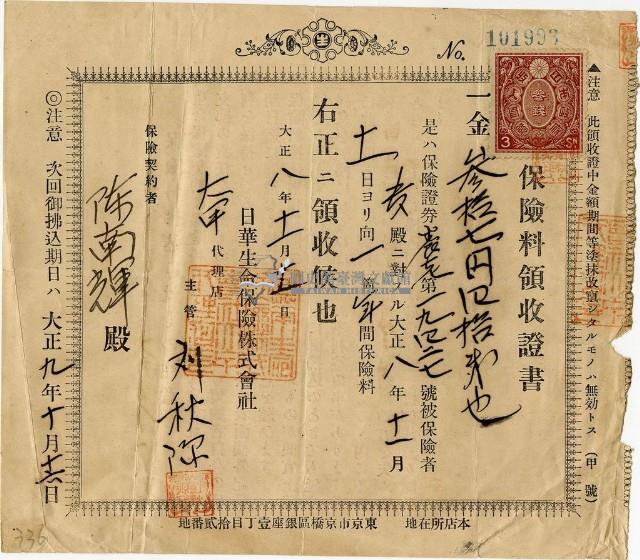 No. 101993
▲注意 此領收證中金額期間等塗抹改竄シタルモノハ無効トス (甲號)
保險料領收證書
一金參拾七円四拾弐也
是ハ保險證券 第一九四二七號被保險者
殿ニ對スル大正八年十一月
日ヨリ向一箇年間保險料
右正ニ領收候也
大正八年十一月 日
日華生命保險株式會社
代理店
主管 刘秋
保險契約者
陈南輝殿
◎注意 次回御拂込期日ハ大正九年十月 日
本店所在地 東京市京橋區銀座壹丁目拾貳番地
參錢
3 Sn
國史館臺灣文獻館
TAIWAN HISTORICA
336